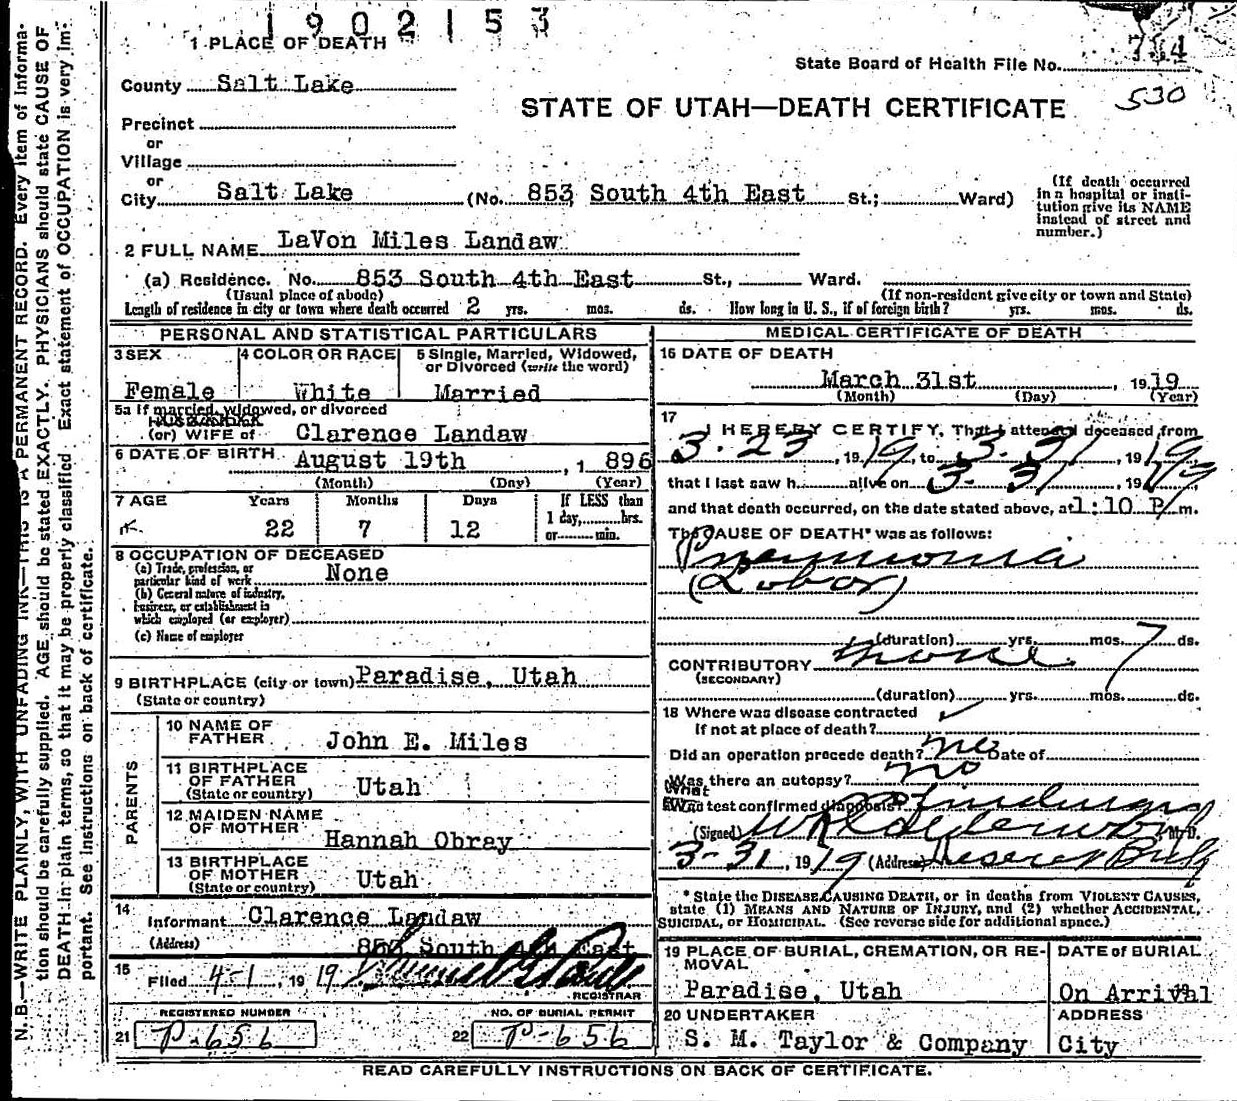 1902153
1 PLACE OF DEATH
State Board of Health File No. 714
530
County Salt Lake
STATE OF UTAH—DEATH CERTIFICATE
Precinct
or
Village
or
City Salt Lake (No. 853 South 4th East St.; Ward)
(If death occurred in a hospital or institution give its NAME instead of street and number.)
2 FULL NAME LaVon Miles Landaw
(a) Residence. No. 853 South 4th East St., Ward.
(Usual place of abode) (If non-resident give city or town and State)
Length of residence in city or town where death occurred 2 yrs. mos. ds. How long in U. S., if of foreign birth? yrs. mos. ds.
PERSONAL AND STATISTICAL PARTICULARS
3 SEX
Female
4 COLOR OR RACE
White
5 Single, Married, Widowed,
or Divorced (write the word)
Married
5a If married, widowed, or divorced
(or) WIFE of Clarence Landaw
6 DATE OF BIRTH August 19th, 1 896
(Month) (Day) (Year)
7 AGE Years Months Days If LESS than
1 day, hrs.
22 7 12 or min.
8 OCCUPATION OF DECEASED
(a) Trade, profession, or
particular kind of work None
(b) General nature of industry,
business, or establishment in
which employed (or employer)
(c) Name of employer
9 BIRTHPLACE (city or town) Paradise, Utah
(State or country)
PARENTS
10 NAME OF
FATHER John E. Miles
11 BIRTHPLACE
OF FATHER
(State or country) Utah
12 MAIDEN NAME
OF MOTHER
Hannah Obray
13 BIRTHPLACE
OF MOTHER
(State or country) Utah
14
Informant Clarence Landaw
(Address) 853 South 4th East
15
Filed 4-1, 1919
REGISTRAR
REGISTERED NUMBER
21 P-656
NO. OF BURIAL PERMIT
22 P-656
MEDICAL CERTIFICATE OF DEATH
16 DATE OF DEATH
March 31st, 1919
(Month) (Day) (Year)
17
I HEREBY CERTIFY, That I attended deceased from
3-23, 1919, to 3-31, 1919
that I last saw h alive on 3-31, 1919
and that death occurred, on the date stated above, at 1:10 P m.
The CAUSE OF DEATH* was as follows:
Pneumonia
(Lobar)
(duration) yrs. mos. 7 ds.
CONTRIBUTORY none.
(SECONDARY)
(duration) yrs. mos. ds.
18 Where was disease contracted
If not at place of death?
Did an operation precede death? no Date of
Was there an autopsy? no
What test confirmed diagnosis?
(Signed) M. D.
3-31, 1919 (Address) Deseret Bnk
*State the DISEASE CAUSING DEATH, or in deaths from VIOLENT CAUSES,
state (1) MEANS AND NATURE OF INJURY, and (2) whether ACCIDENTAL,
SUICIDAL, or HOMICIDAL. (See reverse side for additional space.)
19 PLACE OF BURIAL, CREMATION, OR RE-
MOVAL
Paradise, Utah
DATE of BURIAL
On Arrival
20 UNDERTAKER
S. M. Taylor & Company
ADDRESS
City
READ CAREFULLY INSTRUCTIONS ON BACK OF CERTIFICATE.
N. B.—WRITE PLAINLY, WITH UNFADING INK—THIS IS A PERMANENT RECORD. Every item of informa-
tion should be carefully supplied. AGE should be stated EXACTLY. PHYSICIANS should state CAUSE OF
DEATH in plain terms, so that it may be properly classified. Exact statement of OCCUPATION is very im-
portant. See instructions on back of certificate.